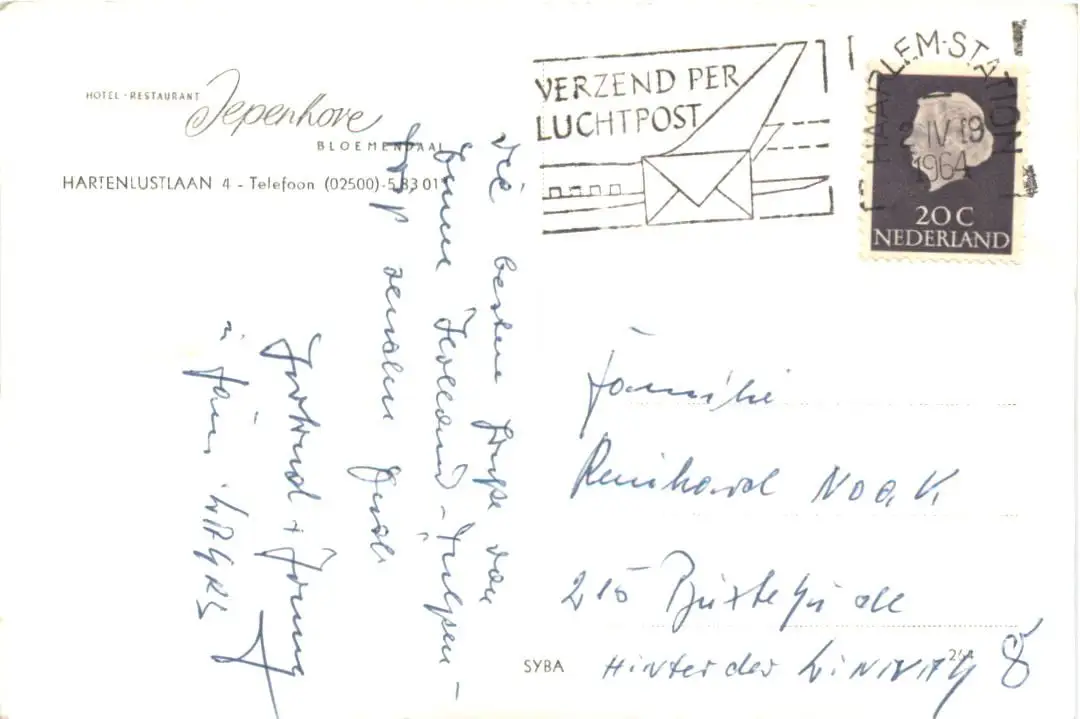 HOTEL - RESTAURANT Iepenhove
BLOEMENDAAL
HARTENLUSTLAAN 4 - Telefoon (02500)-5 83 01
VERZEND PER
LUCHTPOST
HAARLEM-STATION
IV 19
1964
20 C
NEDERLAND
Die besten Grüße von
einem Holland-Tulpen-
senden Euch
Gertrud +
u. Fam.
Familie
Reinhard Noak
215 Buxtehude
Hinter der 8
SYBA